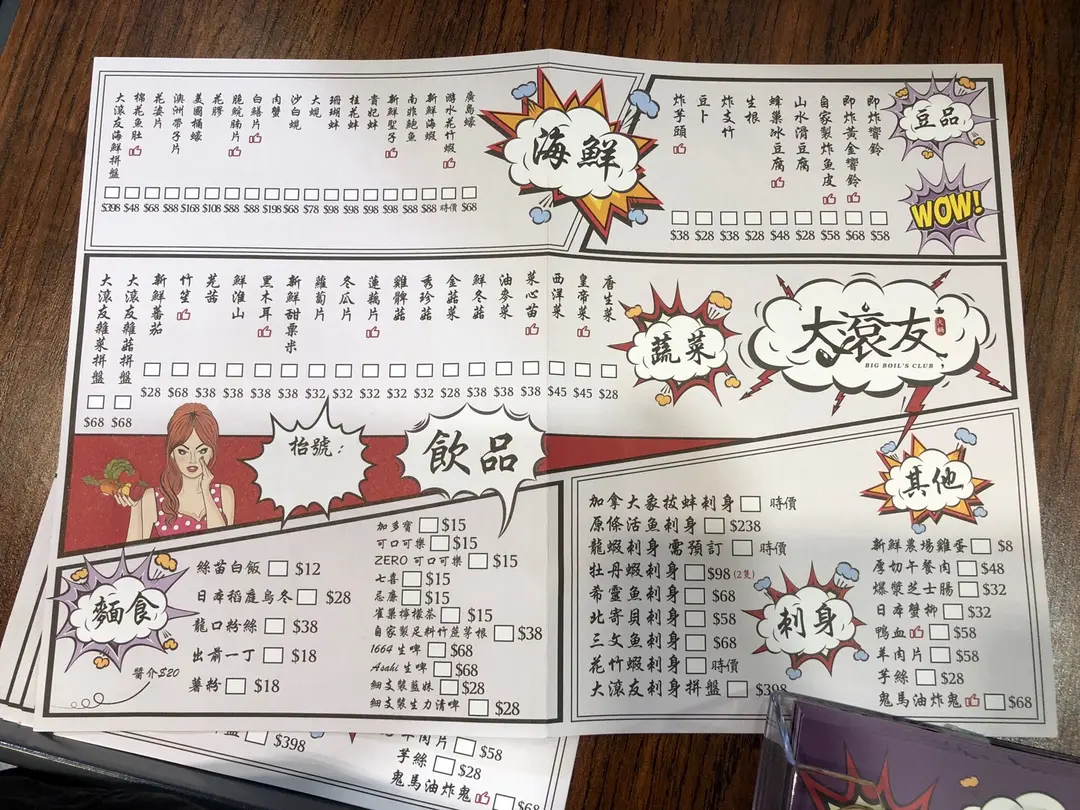 豆品
WOW!
即炸響鈴 $58
即炸黃金響鈴 $68
自家製炸魚皮 $58
山水滑豆腐 $28
蜂巢冰豆腐 $48
生根 $28
炸支竹 $38
豆卜 $28
炸芋頭 $38
海鮮
廣島蠔 $68
游水花竹蝦 時價
新鮮海蝦 $88
南非鮑魚 $88
新鮮聖子 $98
貴妃蚌 $98
桂花蚌 $98
珊瑚蚌 $98
大蜆 $78
沙白蜆 $68
肉蟹 $198
白鱔片 $88
脆鯇腩片 $88
花膠 $108
美國桶蠔 $168
澳洲帶子片 $88
花婆片 $68
棉花魚肚 $48
大滾友海鮮拼盤 $398
大滾友
火鍋
BIG BOIL'S CLUB
蔬菜
唐生菜 $28
皇帝菜 $45
西洋菜 $45
菜心苗 $38
油麥菜 $38
鮮冬菇 $38
金菇菜 $28
秀珍菇 $32
雞髀菇 $32
蓮藕片 $32
冬瓜片 $32
蘿蔔片 $32
新鮮甜粟米 $38
黑木耳 $38
鮮淮山 $38
芫茜 $38
竹笙 $68
新鮮番茄 $28
大滾友雜菇拼盤 $68
大滾友雜菜拼盤 $68
枱號：
飲品
加多寶 $15
可口可樂 $15
ZERO 可口可樂 $15
七喜 $15
忌廉 $15
雀巢檸檬茶 $15
自家製足料竹蔗茅根 $38
1664 生啤 $68
Asahi 生啤 $68
細支裝藍妹 $28
細支裝生力清啤 $28
麵食
醬介$20
絲苗白飯 $12
日本稻庭烏冬 $28
龍口粉絲 $38
出前一丁 $18
薯粉 $18
刺身
加拿大象拔蚌刺身 時價
原條活魚刺身 $238
龍蝦刺身 需預訂 時價
牡丹蝦刺身 $98 (2隻)
希靈魚刺身 $68
北寄貝刺身 $58
三文魚刺身 $68
花竹蝦刺身 時價
大滾友刺身拼盤 $398
其他
新鮮農場雞蛋 $8
厚切午餐肉 $48
爆漿芝士腸 $32
日本蟹柳 $32
鴨血 $58
羊肉片 $58
芋絲 $28
鬼馬油炸鬼 $68
盤 $398
羊肉片 $58
芋絲 $28
鬼馬油炸鬼 $68